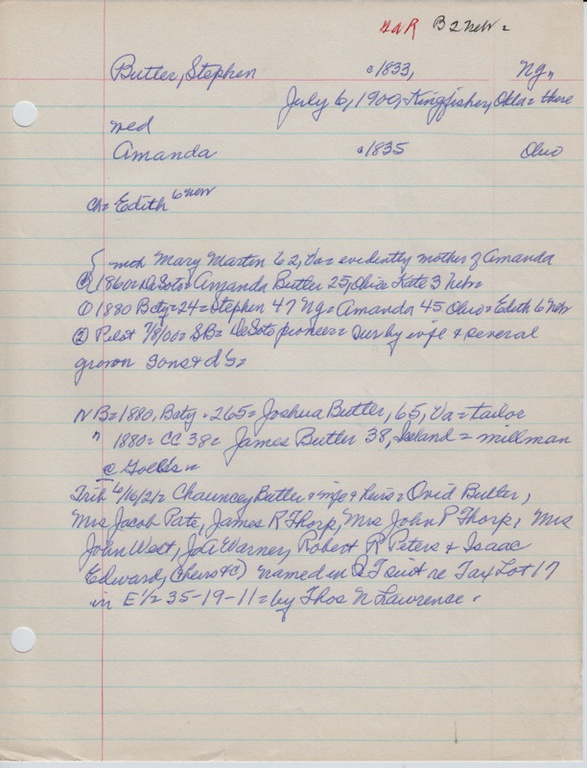 GAR B 2 Nebr =
Butler, Stephen c1833, Ng,,
July 6, 1900, Kingfisher, Okla = there
med
Amanda c1835 Ohio
Ch = Edith 6 Nebr
{ with Mary Marten 62, Va = evidently mother of Amanda
1860 = DeSoto = Amanda Butler 25, Ohio = Kate 3 Nebr =
① 1880 Bcty = 24 = Stephen 47 Ng = Amanda 45 Ohio = Edith 6 Nebr
② Pilot 7/ /00 = SB = DeSoto pioneer = Sur by wife & several
grown sons & d's =
NB = 1880, Bcty - 265 = Joshua Butler, 65, Va = tailor
" 1880 = CC 38 = James Butler 38, Ireland = millman
@
Trib 6/16/21 = Chauncey Butler & wife & heirs = Ovid Butler,
Mrs Jacob Pate, James R Thorp, Mrs John P Thorp, Mrs
John West, Warner, Robert R Peters & Isaac
Edwards, (heirs &c) named in Q T suit re Tax Lot 17
in E 1/2 35-19-11 = by Thos N Lawrence.